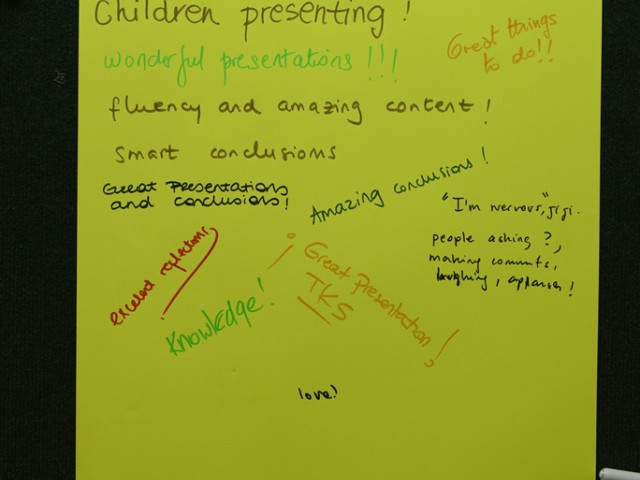 Children presenting!
wonderful presentations!!!
Great things
to do!!
fluency and amazing content!
smart conclusions
Great Presentations
and conclusions!
Amazing conclusions!
"I'm nervous,"
people asking?,
making commts,
laughing,
excelent reflections,
Knowledge!
¡Great Presentation!
TKS
love!